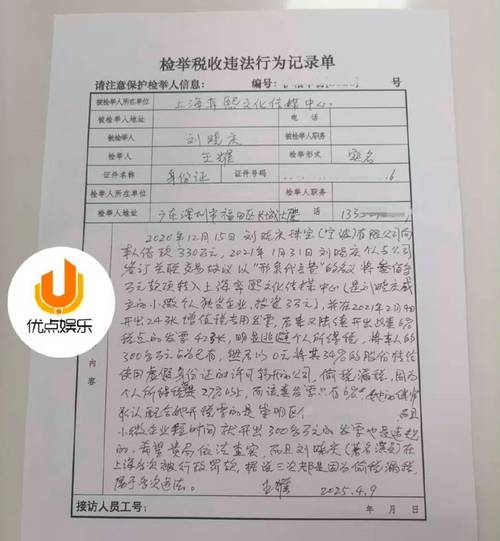 检举税收违法行为记录单
请注意保护检举人信息： 编号： 号
被检举人所在单位 上海奔熙文化传媒中心
被检举人地址 电话
被检举人 刘晓庆 被检举人职务
检举人 王耀 检举形式 实名
证件名称 身份证 证件号码 6
检举人所在单位 检举人职务
检举人地址 广东深圳市福田区长城大厦 133
2020年12月15日刘晓庆珠宝（宁波）有限公司向
本人借款330万元，2021年1月31日刘晓庆个人与公司
签订关联交易协议以“形象代言费”的名义将叁佰
万元款项转入上海奔熙文化传媒中心（是刘晓庆成
立的小微个人独资企业，投资3万元），并在2021年2月
开出24张增值税专用发票，后来又陆续开出
税点的发票42张，明显逃避个人所得税，将本人的
300多万元占为己有，然后以0元将其34%的股份转给
使用虚假身份证的许可的公司，偷税漏税，因为
个人所得税是27%，而该类发票只有6%，
承认配合她开税票的是崇明区， 而且
小微企业短时间获开出300多万元的发票也是违规
的，希望贵局依法查实，而且刘晓庆（著名演员）在
上海多次被行政罚款，据说三次都是因为偷税漏税，
属于多次违法。 王耀 2025.4.9
内容
接访人员工号： 年 月 日
优点娱乐